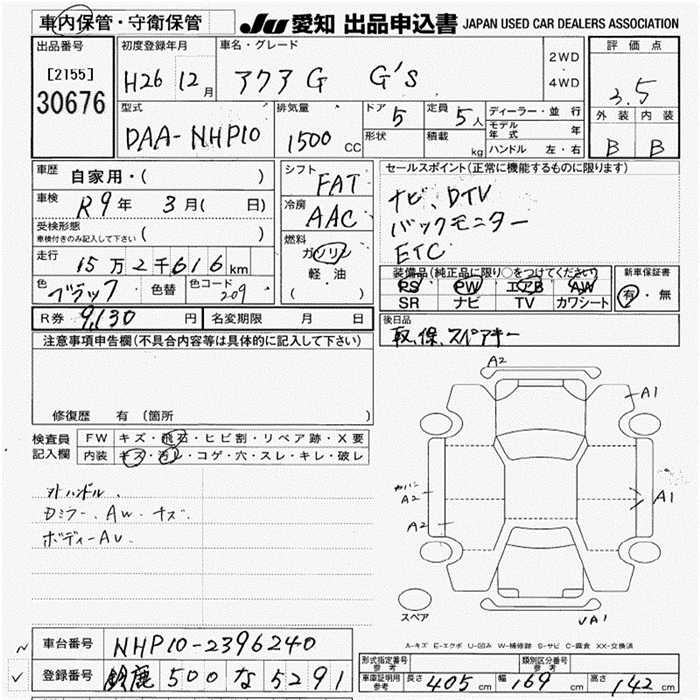 車内保管・守衛保管
JU 愛知 出品申込書 JAPAN USED CAR DEALERS ASSOCIATION
出品番号 初度登録年月 車名・グレード 2WD・4WD 評価点
[2155] H26 12月 アクア G G's 3.5
30676
外装 内装
B B
型式 排気量 ドア 5 定員 5人 ディーラー・並行
DAA-NHP10 1500CC 形状 積載 kg モデル年式 年
ハンドル 左・右
車歴 自家用・( ) シフト FAT
セールスポイント(正常に機能するものに限ります)
車検 R9年 3月( 日) 冷房 AAC
ナビ、DTV
バックモニター
ETC
受検形態 ( )
車検付きのみ記入して下さい
燃料 ガソリン 軽・油 ( )
走行 15万2千616km
装備品(純正品に限り○をつけてください) 新車保証書
PS PW エアB AW 有・無
SR ナビ TV カワシート
色 ブラック 色替 色コード 209
後日品
取、保、スペアキー
R券 9,130円 名変期限 月 日
注意事項申告欄(不具合内容等は具体的に記入して下さい)
修復歴 有(箇所 )
検査員記入欄 FW キズ・飛石・ヒビ割・リペア跡・X要
内装 キズ・汚レ・コゲ・穴・スレ・キレ・破レ
ハンドル
Dミラー、AW キズ
ボディーAU
A2
A1
A2
A1
A2
スペア
A1
A-キズ E-エクボ U-凹み W-補修跡 S-サビ C-腐食 XX-交換済
車台番号 NHP10-2396240
登録番号 鈴鹿 500 な 5291
形式指定番号 参考 類別区分番号 参考
車庫証明用参考 長さ 405cm 幅 169cm 高さ 142cm